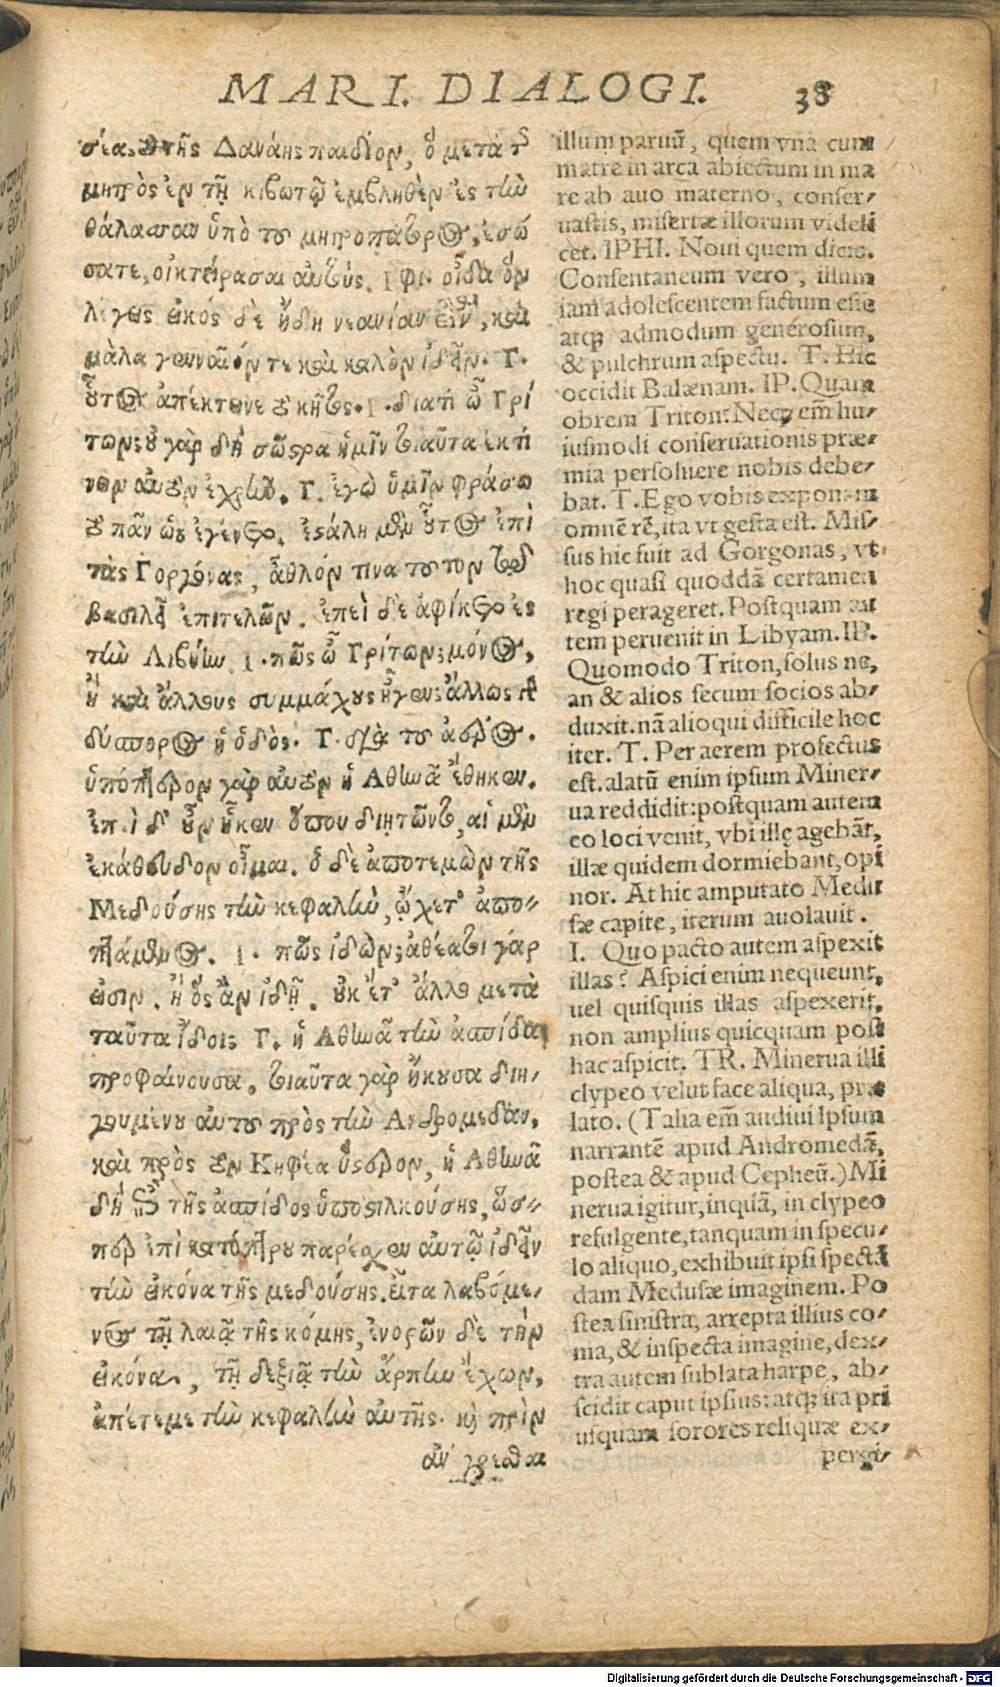 MARI. DIALOGI. 38
σέα, τὸ τῆς Δανάης παιδίον, ὃ μετὰ τ῀
μητρὸς ἐν τῇ κιβωτῷ ἐμβληθὲν ἐς τὴν
θάλασσαν ὑπὸ τοῦ μητροπάτορος, ἐσώ
σατε, οἰκτείρασαι αὐτούς. Ιφι. οἶδα ὃν
λέγεις εἰκός δὲ ἤδη νεανίαν εἶναι, καὶ
μάλα γενναῖόν τε καὶ καλὸν ἰδεῖν. Τ.
οὗτος ἀπέκτεινε τὸ κῆτος. Ι. διατί ὦ Τρί
των; οὐ γὰρ δὴ σῶστρα ἡμῖν τοιαῦτα ἐκτί
νειν αὐτὸν ἐχρῆν. Τ. ἐγὼ ὑμῖν φράσω
τὸ πᾶν ὡς ἐγένετο. ἐστάλη μὲν οὗτος ἐπὶ
τὰς Γοργόνας, ἆθλόν τινα τοῦτον τῷ
βασιλεῖ ἐπιτελῶν. ἐπεὶ δὲ ἀφίκετο ἐς
τὴν Λιβύην Ι. πῶς ὦ Τρίτων; μόνος,
ἢ καὶ ἄλλους συμμάχους ἦγεν; ἄλλως γὰρ
δύσπορος ἡ ὁδός. Τ. διὰ τοῦ ἀέρος.
ὑπόπτερον γὰρ αὐτὸν ἡ Αθηνᾶ ἔθηκεν.
ἐπεὶ δ' οὖν ἧκεν ὅπου διητῶντο, αἱ μὲν
ἐκάθευδον οἶμαι. ὁ δὲ ἀποτεμὼν τῆς
Μεδούσης τὴν κεφαλὴν, ᾤχετ' ἀπο-
πτάμενος. Ι. πῶς ἰδών; ἀθέατοι γάρ
εἰσιν. ἢ ὃς ἂν ἴδῃ. οὐκ ἔτ' ἄλλο μετὰ
ταῦτα ἴδοι; Τ. ἡ Αθηνᾶ τὴν ἀσπίδα
προφαίνουσα. τοιαῦτα γὰρ ἤκουσα διη-
γουμένου αὐτοῦ πρὸς τὴν Ανδρομέδαν,
καὶ πρὸς τὸν Κηφέα ὕστερον, ἡ Αθηνᾶ
δὴ ἐπὶ τῆς ἀσπίδος ὑποστιλβούσης, ὥσ-
περ ἐπὶ κατόπτρου παρέσχεν αὐτῷ ἰδεῖν
τὴν εἰκόνα τῆς μεδούσης. εἶτα λαβόμε-
νος τῇ λαιᾷ τῆς κόμης, ἐνορῶν δὲ τὴν
εἰκόνα, τῇ δεξιᾷ τὴν ἅρπην ἔχων,
ἀπέτεμε τὴν κεφαλὴν αὐτῆς. καὶ πρὶν
illum paruū, quem vna cum
matre in arca abiectum in ma
re ab auo materno, conser-
uastis, misertæ illorum videli
cet. IPHI. Noui quem dicis.
Consentaneum vero, illum
iam adolescentem factum esse
atq; admodum generosum,
& pulchrum aspectu. T. Hic
occidit Balænam. IP. Quam
obrem Triton? Neq; em̄ hu-
iusmodi conseruationis præ-
mia persoluere nobis debe-
bat. T. Ego vobis exponam
omnē rē, ita vt gesta est. Mis-
sus hic fuit ad Gorgonas, vt
hoc quasi quoddā certamen
regi perageret. Postquam au
tem peruenit in Libyam. IP.
Quomodo Triton, solus ne,
an & alios secum socios ab-
duxit. nā alioqui difficile hoc
iter. T. Per aerem profectus
est. alatū enim ipsum Miner-
ua reddidit: postquam autem
eo loci venit, vbi illę agebāt,
illæ quidem dormiebant, opi
nor. At hic amputato Medu
sæ capite, iterum auolauit.
I. Quo pacto autem aspexit
illas? Aspici enim nequeunt,
uel quisquis illas aspexerit,
non amplius quicquam post
hac aspicit. TR. Minerua illi
clypeo velut face aliqua, præ
lato. (Talia em̄ audiui ipsum
narrantē apud Andromedā,
postea & apud Cepheū.) Mi
nerua igitur, inquā, in clypeo
refulgente, tanquam in specu-
lo aliquo, exhibuit ipsi spectā
dam Medusæ imaginem. Po
stea sinistra, arrepta illius co-
ma, & inspecta imagine, dex-
tra autem sublata harpe, ab-
scidit caput ipsius: atq; ita pri
usquam sorores reliquæ ex-
ἀνεγρέσθαι
pergi-
Digitalisierung gefördert durch die Deutsche Forschungsgemeinschaft - DFG